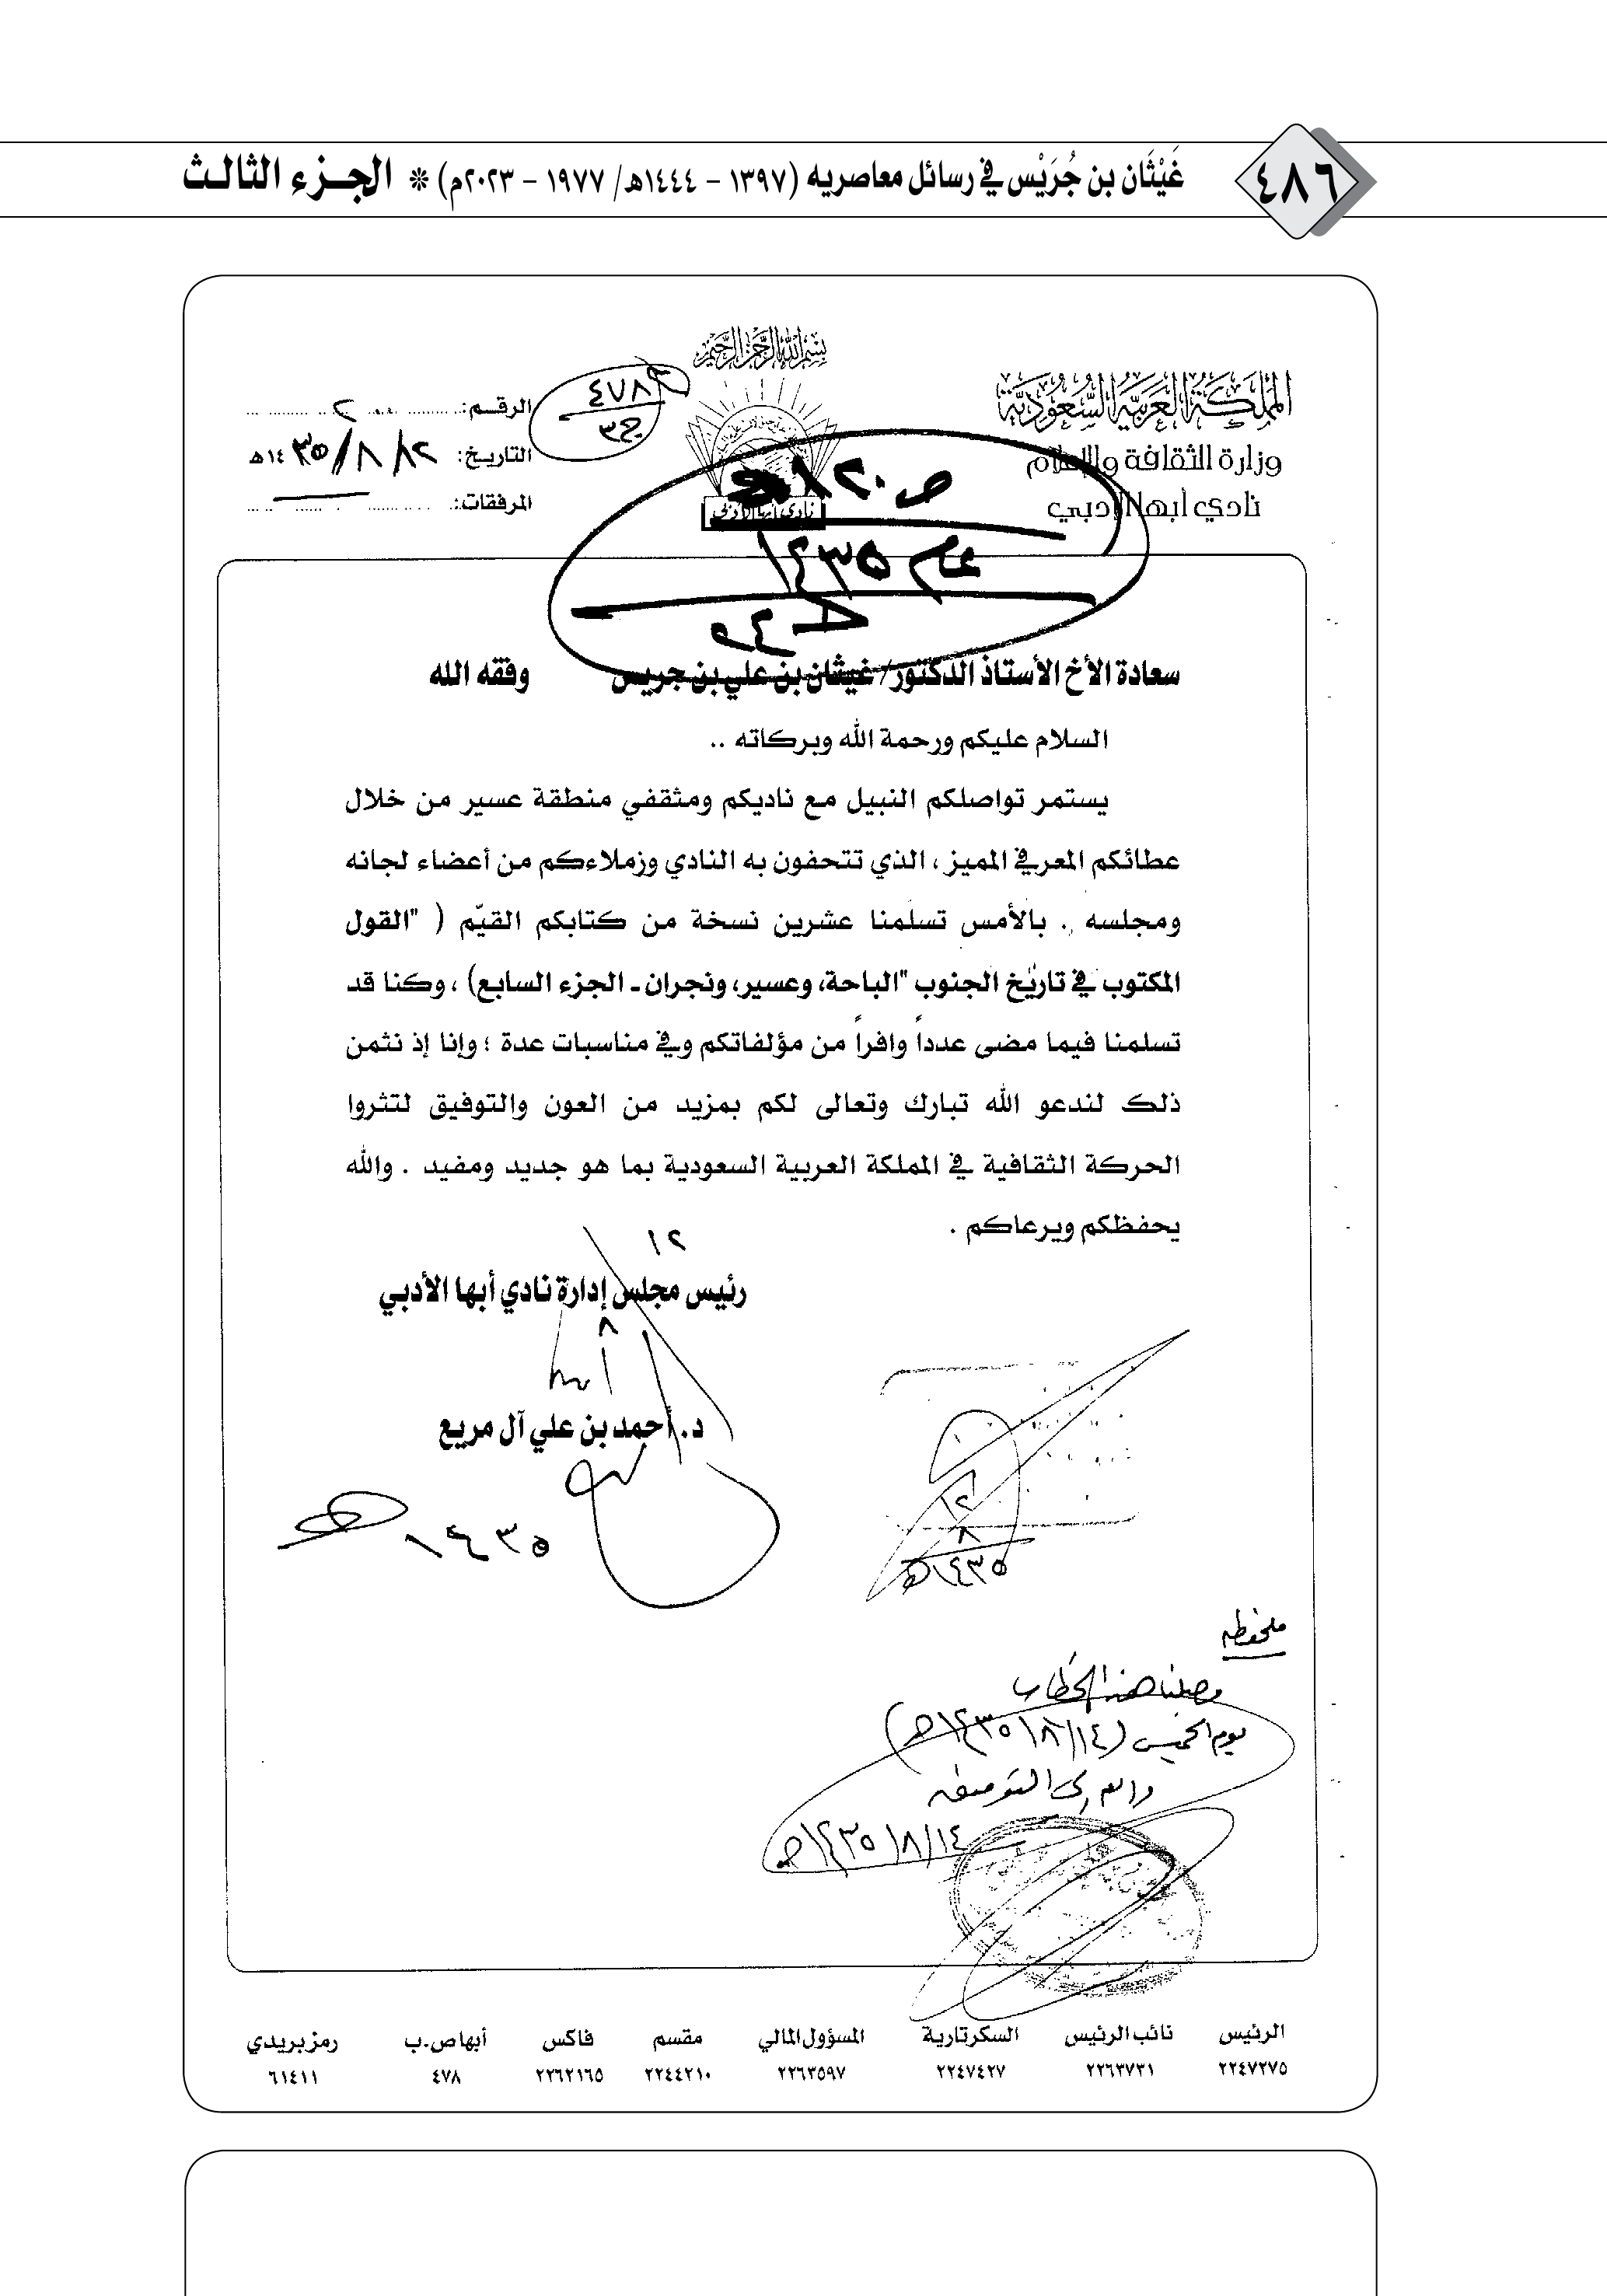 ٤٨٦
غَيْثَان بن جُرَيْس في رسائل معاصريه (١٣٩٧ - ١٤٤٤هـ/ ١٩٧٧ - ٢٠٢٣م) * الجزء الثالث
بسم الله الرحمن الرحيم
المملكة العربية السعودية
وزارة الثقافة والإعلام
نادي أبها الأدبي
نادي أبها الأدبي
الرقم:
التاريخ: ١٢/٨/١٤٣٥هـ
المرفقات:
٤٧٨
سعادة الأخ الأستاذ الدكتور/ غيثان بن علي بن جريس وفقه الله
السلام عليكم ورحمة الله وبركاته ..
يستمر تواصلكم النبيل مع ناديكم ومثقفي منطقة عسير من خلال
عطائكم المعرفي المميز ، الذي تتحفون به النادي وزملاءكم من أعضاء لجانه
ومجلسه . بالأمس تسلمنا عشرين نسخة من كتابكم القيّم ( "القول
المكتوب في تاريخ الجنوب "الباحة، وعسير، ونجران ـ الجزء السابع) ، وكنا قد
تسلمنا فيما مضى عدداً وافراً من مؤلفاتكم وفي مناسبات عدة ؛ وإنا إذ نثمن
ذلك لندعو الله تبارك وتعالى لكم بمزيد من العون والتوفيق لتثروا
الحركة الثقافية في المملكة العربية السعودية بما هو جديد ومفيد . والله
يحفظكم ويرعاكم .
١٢
رئيس مجلس إدارة نادي أبها الأدبي
٨
أبها
د. أحمد بن علي آل مريع
١٤٣٥هـ
١٢
٨
١٤٣٥هـ
ملحوظه
وصلنا هذا الخطاب
يوم الخميس (١٤/٨/١٤٣٥هـ)
والله ولي التوفيق
١٤/٨/١٤٣٥هـ
الرئيس نائب الرئيس السكرتارية المسؤول المالي مقسم فاكس أبها ص.ب رمز بريدي
٢٢٤٧٢٧٥ ٢٢٦٣٧٣١ ٢٢٤٧٤٢٧ ٢٢٦٣٥٩٧ ٢٢٤٤٢١٠ ٢٢٦٢١٦٥ ٤٧٨ ٦١٤١١